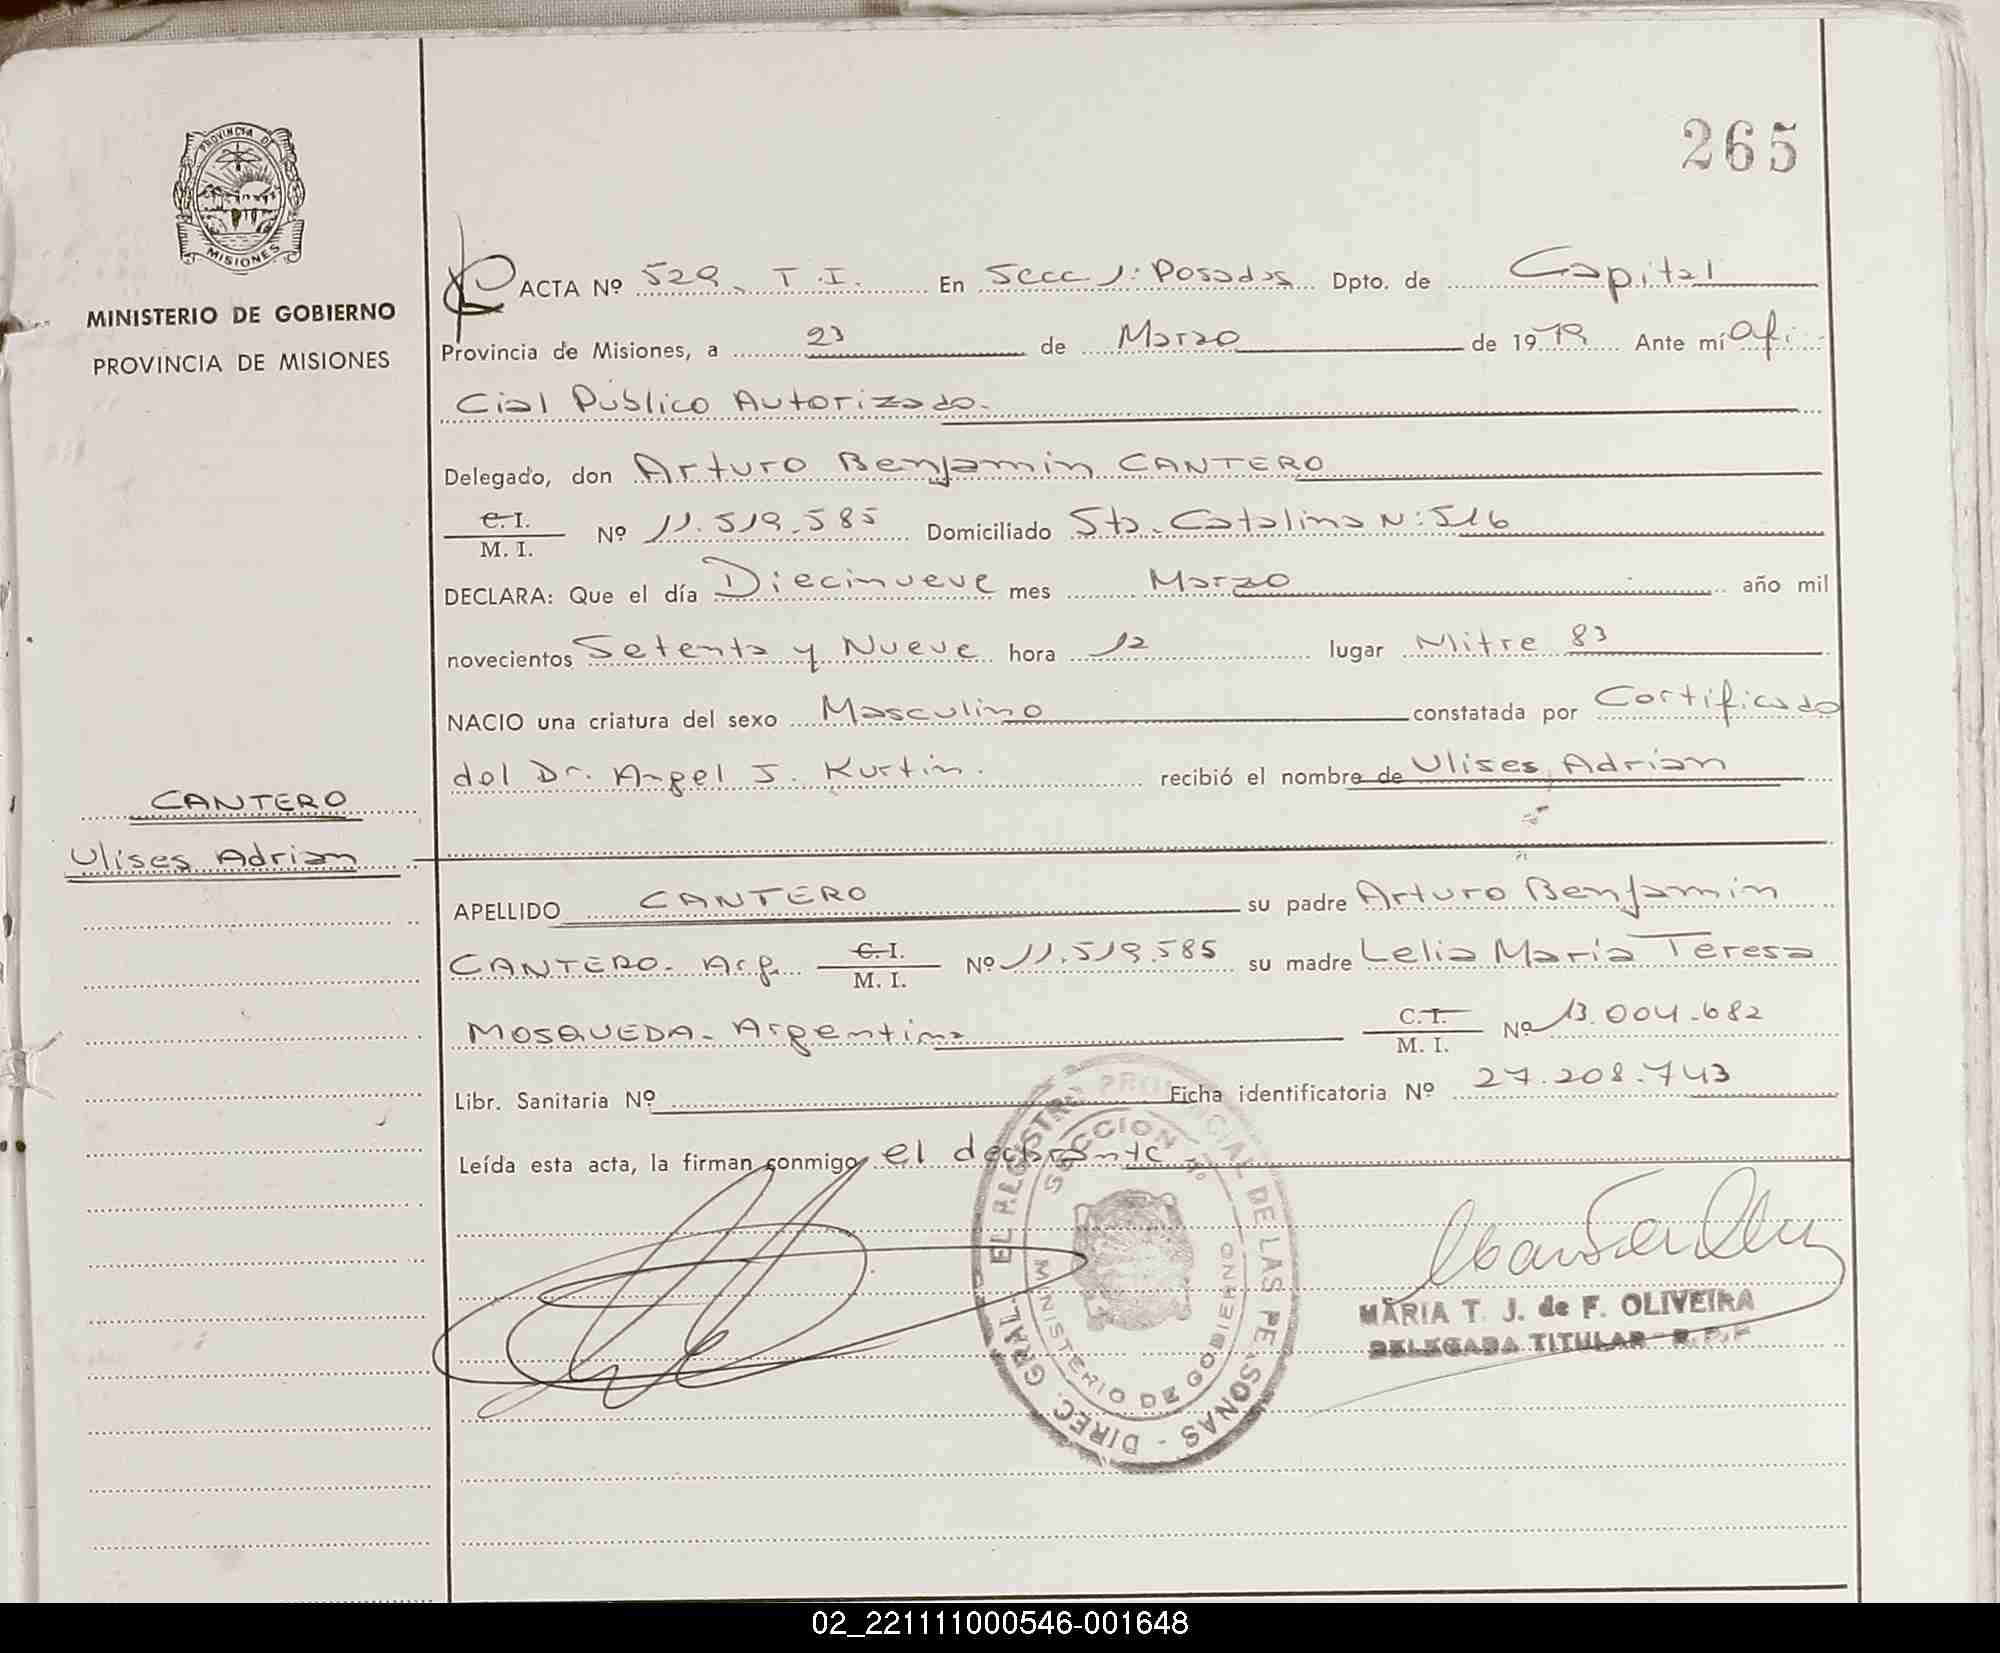 265
PROVINCIA DE
MISIONES
MINISTERIO DE GOBIERNO
PROVINCIA DE MISIONES
ACTA Nº 529. T.I. En Secc 1: Posadas Dpto. de Capital
Provincia de Misiones, a 23 de Marzo de 1979 Ante mí Ofi
cial Público Autorizado.
Delegado, don Arturo Benjamin CANTERO
C. I.
M. I. Nº 11.519.585 Domiciliado Sta. Catalina N: 516
DECLARA: Que el día Diecinueve mes Marzo año mil
novecientos Setenta y Nueve hora 12 lugar Mitre 83
NACIO una criatura del sexo Masculino constatada por Certificado
del Dr. Angel J. Kurtin. recibió el nombre de Ulises Adrian
CANTERO
Ulises Adrian
APELLIDO CANTERO su padre Arturo Benjamin
CANTERO. Arg. C. I. M. I. Nº 11.519.585 su madre Lelia Maria Teresa
MOSQUEDA. Argentina C. I. M. I. Nº 13.004.682
Libr. Sanitaria Nº Ficha identificatoria Nº 27.208.743
Leída esta acta, la firman conmigo el declarante
DIREC. GRAL. EL REGISTRO PROVINCIAL DE LAS PERSONAS -
SECCION Nº
MINISTERIO DE GOBIERNO
MARIA T. J. de F. OLIVEIRA
DELEGADA TITULAR - R.P.P
02_221111000546-001648